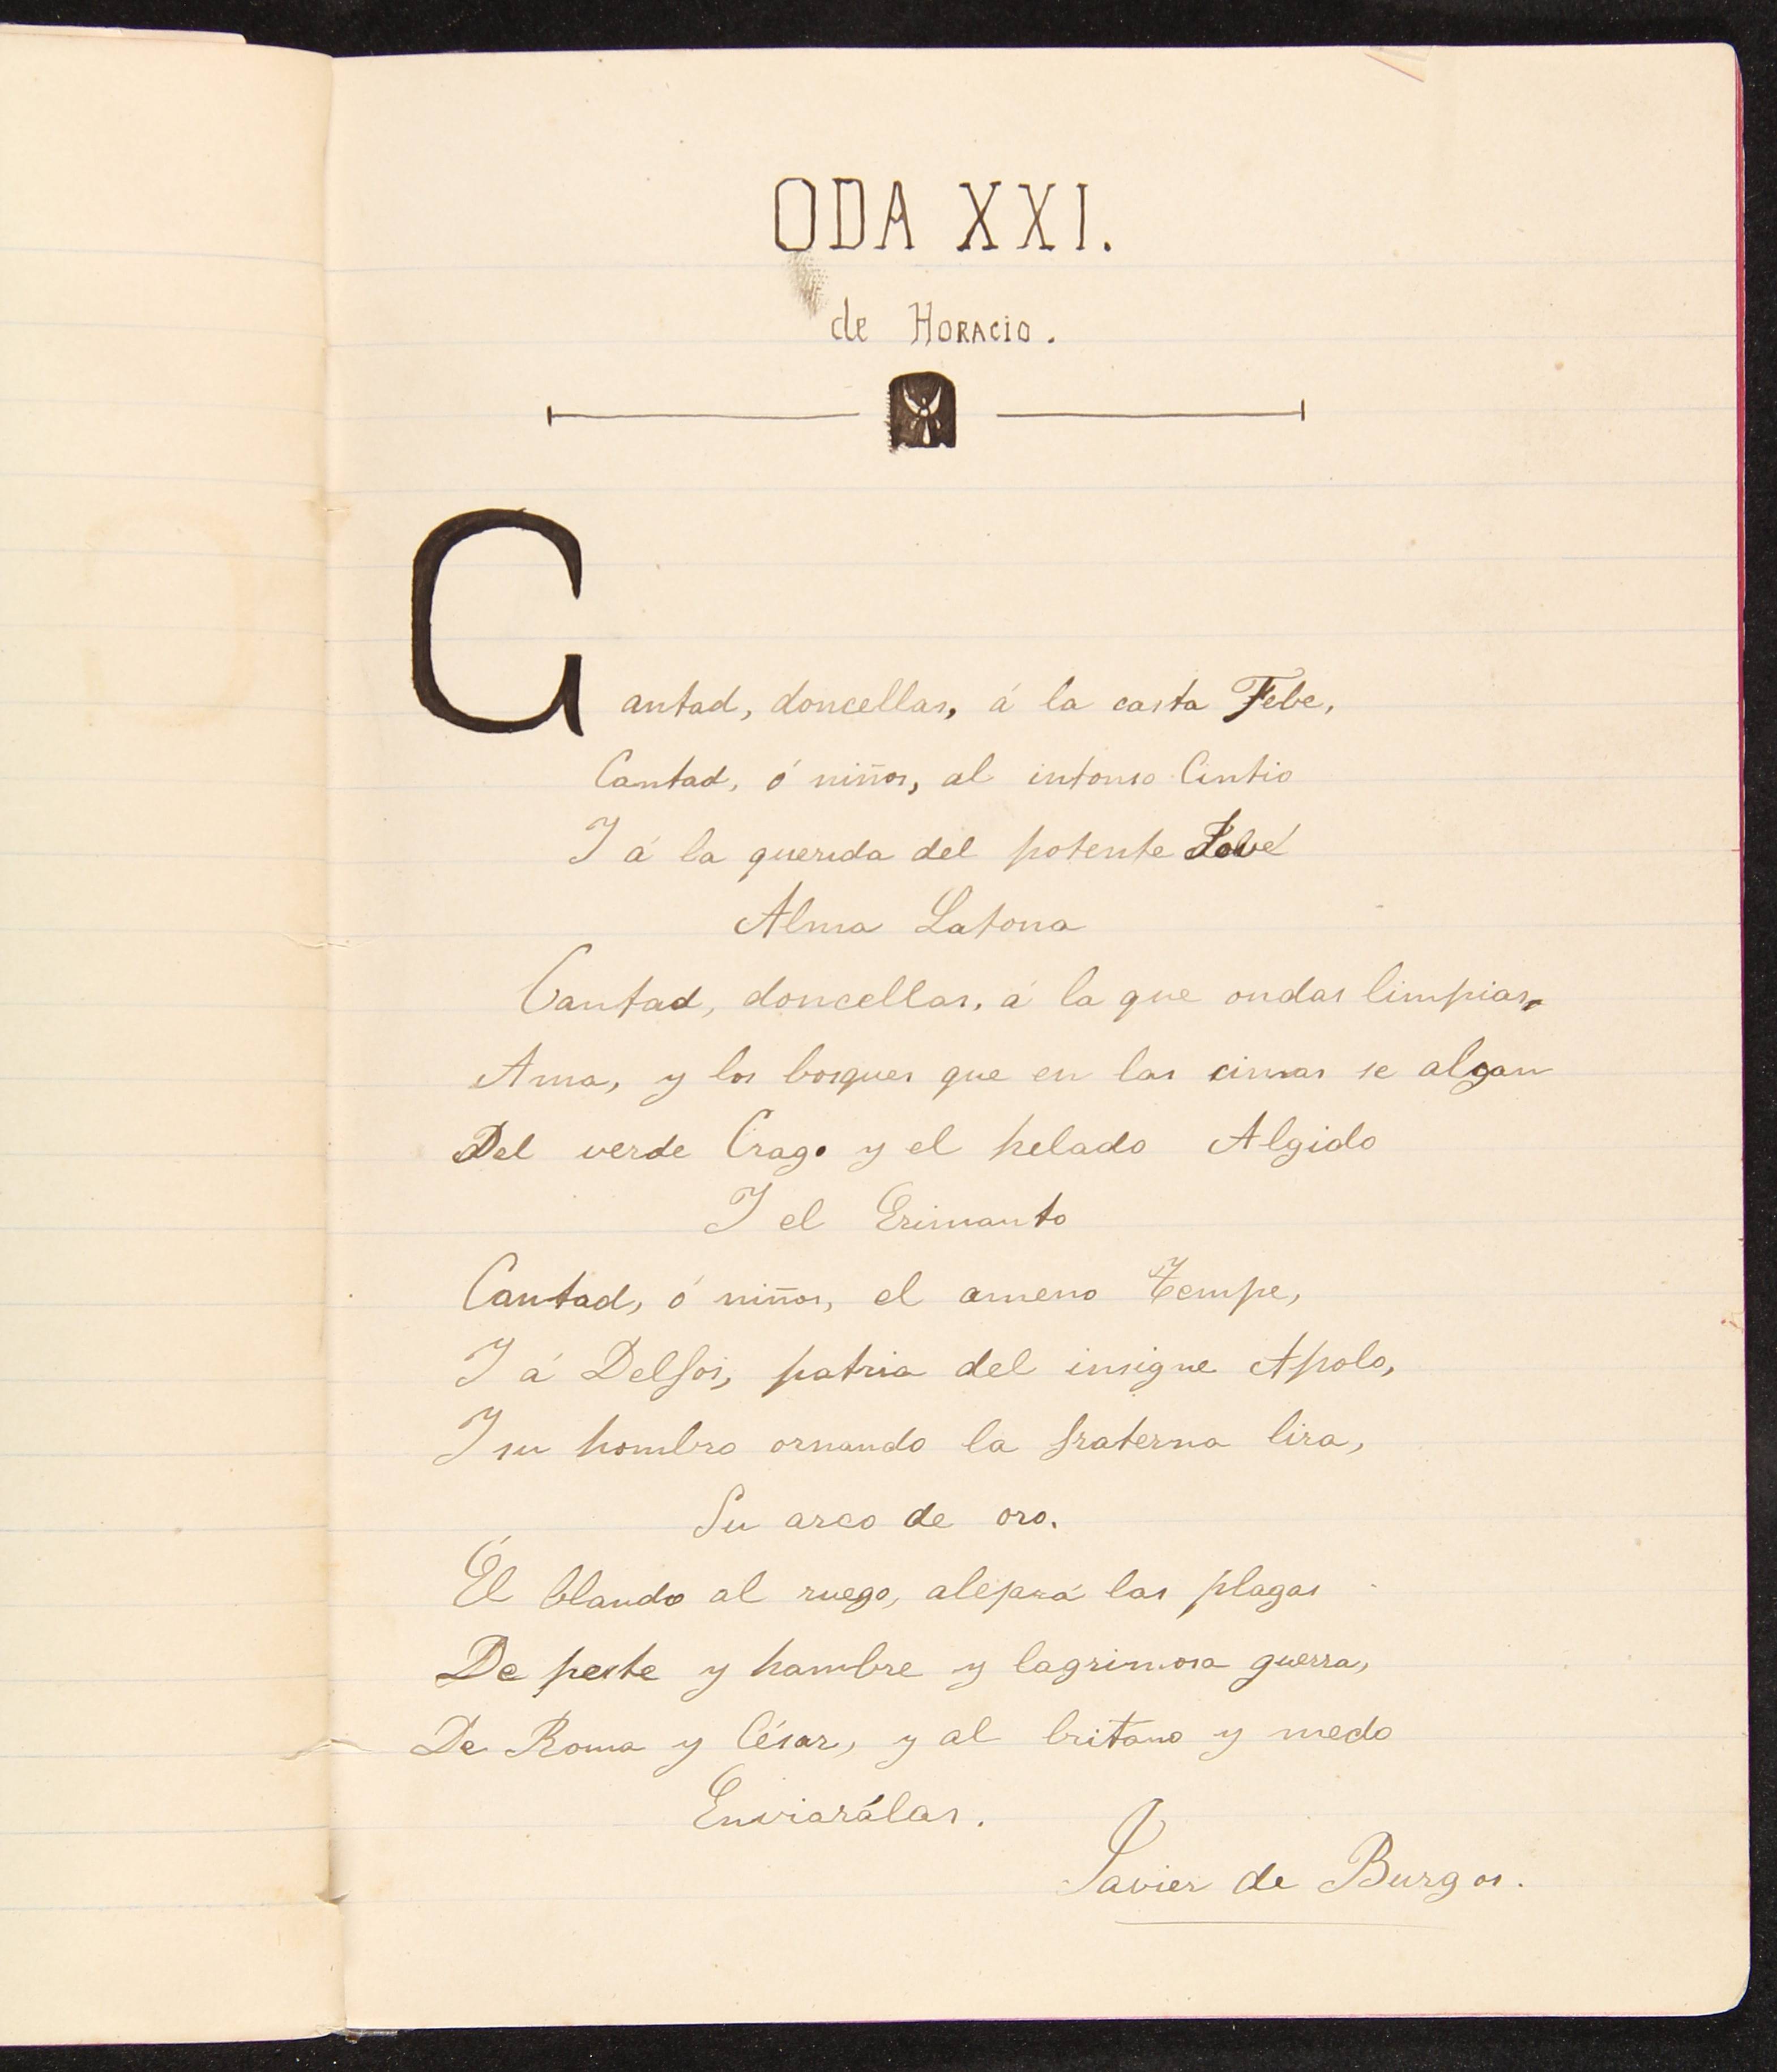 ODA XXI.
de HORACIO.
Cantad, doncellas, á la casta Febe,
Cantad, ó niños, al intonso Cintio
I á la querida del potente Jove
Alma Latona
Cantad, doncellas, á la que ondas limpias,
Ama, y los bosques que en las cimas se alzan
Del verde Crago y el helado Algido
I el Erimanto
Cantad, ó niños, el ameno Tempe,
I á Delfos, patria del insigne Apolo,
I su hombro ornando la fraterna lira,
Su arco de oro.
Él blando al ruego, alejará las plagas
De peste y hambre y lagrimosa guerra,
De Roma y César, y al britano y medo
Enviarálas.
Javier de Burgos.